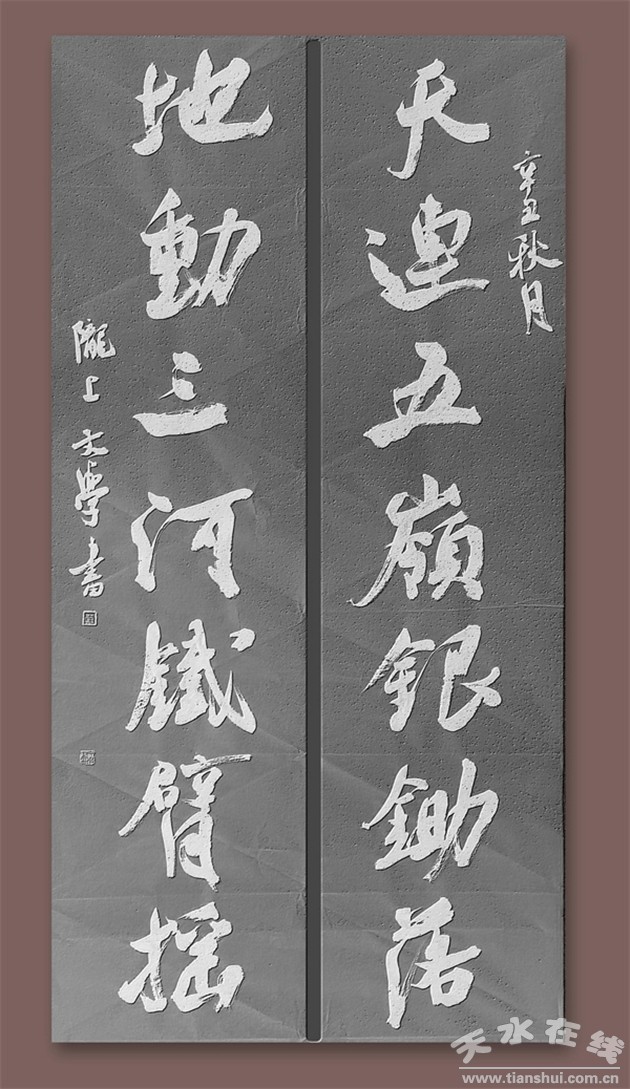 辛丑秋月
天連五嶺銀鋤落
地動三河鐵臂摇
隴上文學書
天水在线
www.tianshui.com.cn